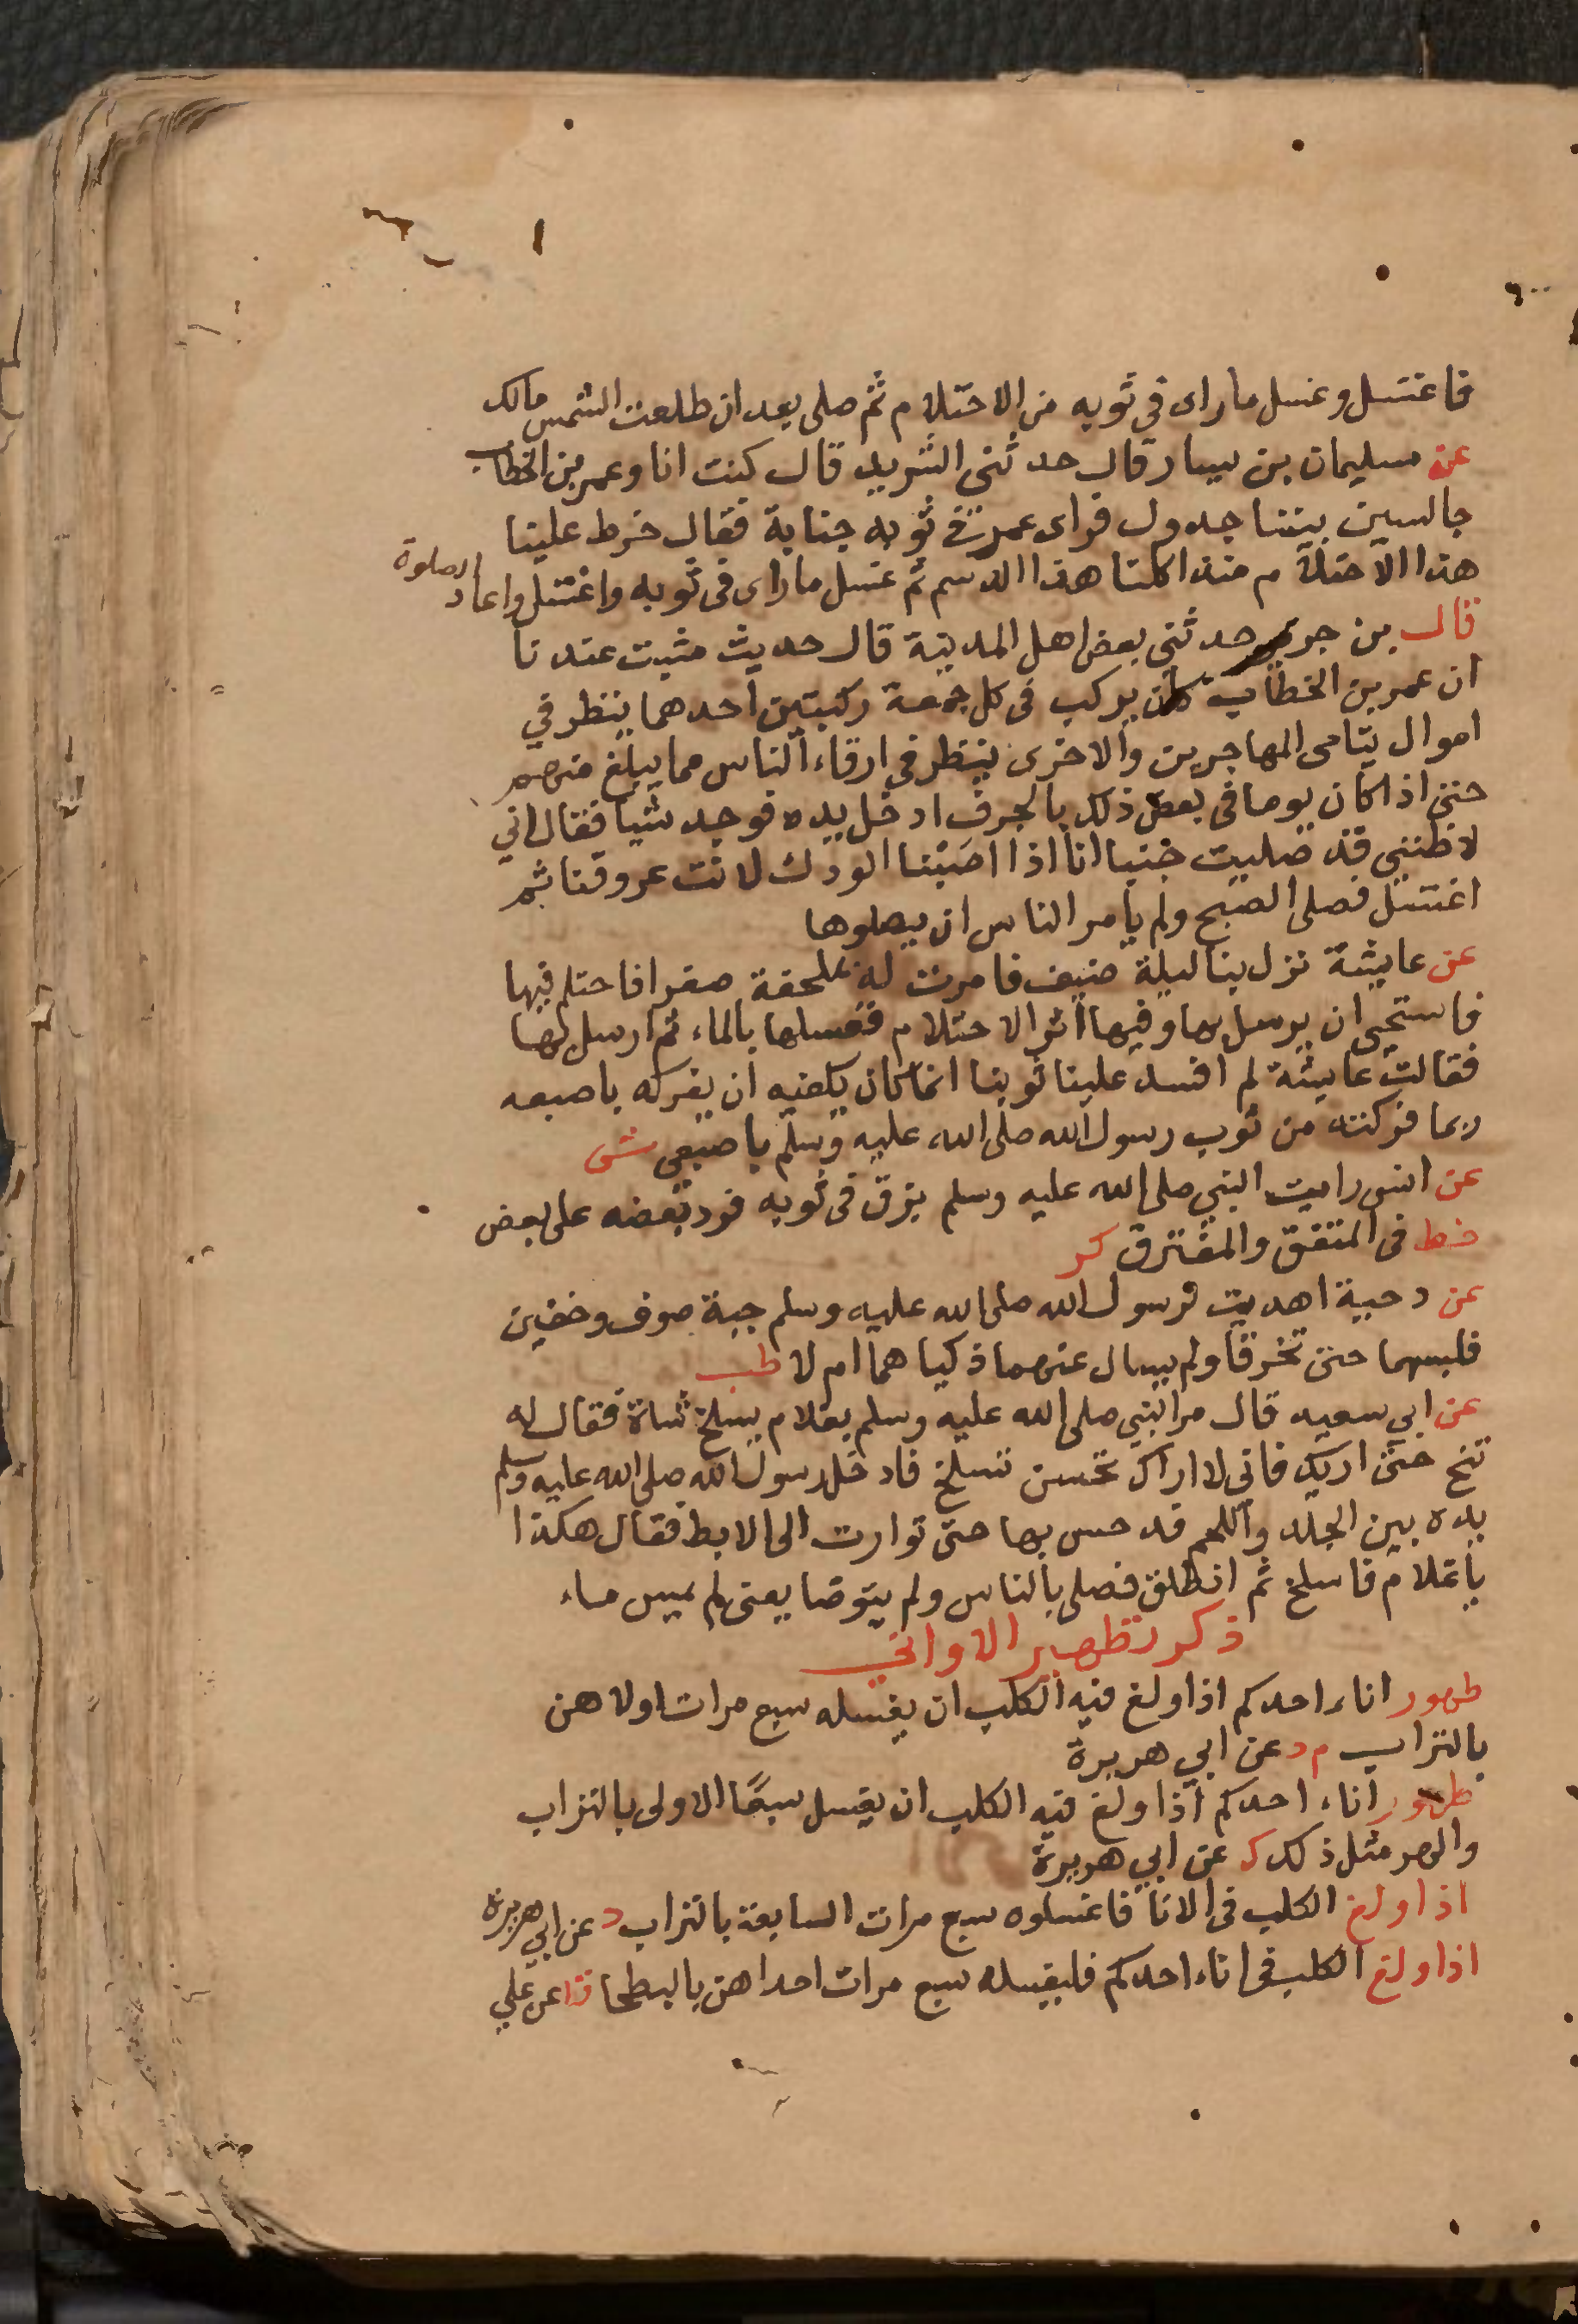 فاغتسل وغسل ماراى فى ثوبه من الاحتلام ثم صلى بعد ان طلعت الشمس مالك
عن سليمان بن يسار قال حدثنى الشريد قال كنت انا وعمر بن الخطاب
جالسين بيننا جدول فراى عمر فى ثوبه جنابة فقال خرط علينا
هذا الاحتلام منذ اكلنا هذا الدسم ثم غسل ماراى فى ثوبه واغتسل واعاد الصلوة
قال بن جريج حدثنى بعض اهل المدينة قال حديث مثبت عندنا
ان عمر بن الخطاب كان يركب فى كل جمعة ركبتين احدهما ينظر في
اموال يتامى المهاجرين والاخرى ينظر في ارقاء الناس مما يبلغ منهم
حتى اذا كان يوما فى بعض ذلك بالجرف ادخل يده فوجد شيا فقال انى
لاظننى قد صليت جنبا انا اذا اصبنا الودك لانت عروقنا ثم
اغتسل فصلى الصبح ولم يأمر الناس ان يصلوها
عن عايشة نزل بنا ليلة ضيف فامرت له بملحفة صفرا فاحتلم فيها
فاستحيى ان يرسل بها وفيها اثر الاحتلام فغسلها بالماء ثم ارسل بها
فقالت عايشة لم افسد علينا ثوبنا انما كان يكفيه ان يفركه باصبعه
ربما فركته من ثوب رسول الله صلى الله عليه وسلم باصبعى ش
عن انس رايت النبي صلى الله عليه وسلم بزق فى ثوبه فرد بعضه على بعض
خط فى المتفق والمفترق كر
عن دحية اهديت لرسول الله صلى الله عليه وسلم جبة صوف وخفين
فلبسهما حتى تخرقا ولم يسال عنهما ذكيا هما ام لا طب
عن ابي سعيد قال مر النبي صلى الله عليه وسلم بغلام يسلخ شاة فقال له
تنح حتى اريك فانى لا اراك تحسن تسلخ فادخل رسول الله صلى الله عليه وسلم
يده بين الجلد واللحم فدحس بها حتى توارت الى الابط فقال هكذا
ياغلام فاسلخ ثم انطلق فصلى بالناس ولم يتوضا يعنى لم يمس ماء
ذكر تطهير الاوانى
طهور اناء احدكم اذا ولغ فيه الكلب ان يغسله سبع مرات اولاهن
بالتراب م د عن ابي هريرة
طهور اناء احدكم اذا ولغ فيه الكلب ان يغسل سبعا الاولى بالتراب
والهر مثل ذلك ك عن ابي هريرة
اذا ولغ الكلب فى الانا فاغسلوه سبع مرات السابعة بالتراب د عن ابي هريرة
اذا ولغ الكلب فى اناء احدكم فليغسله سبع مرات احداهن بالبطحا قط عن علي